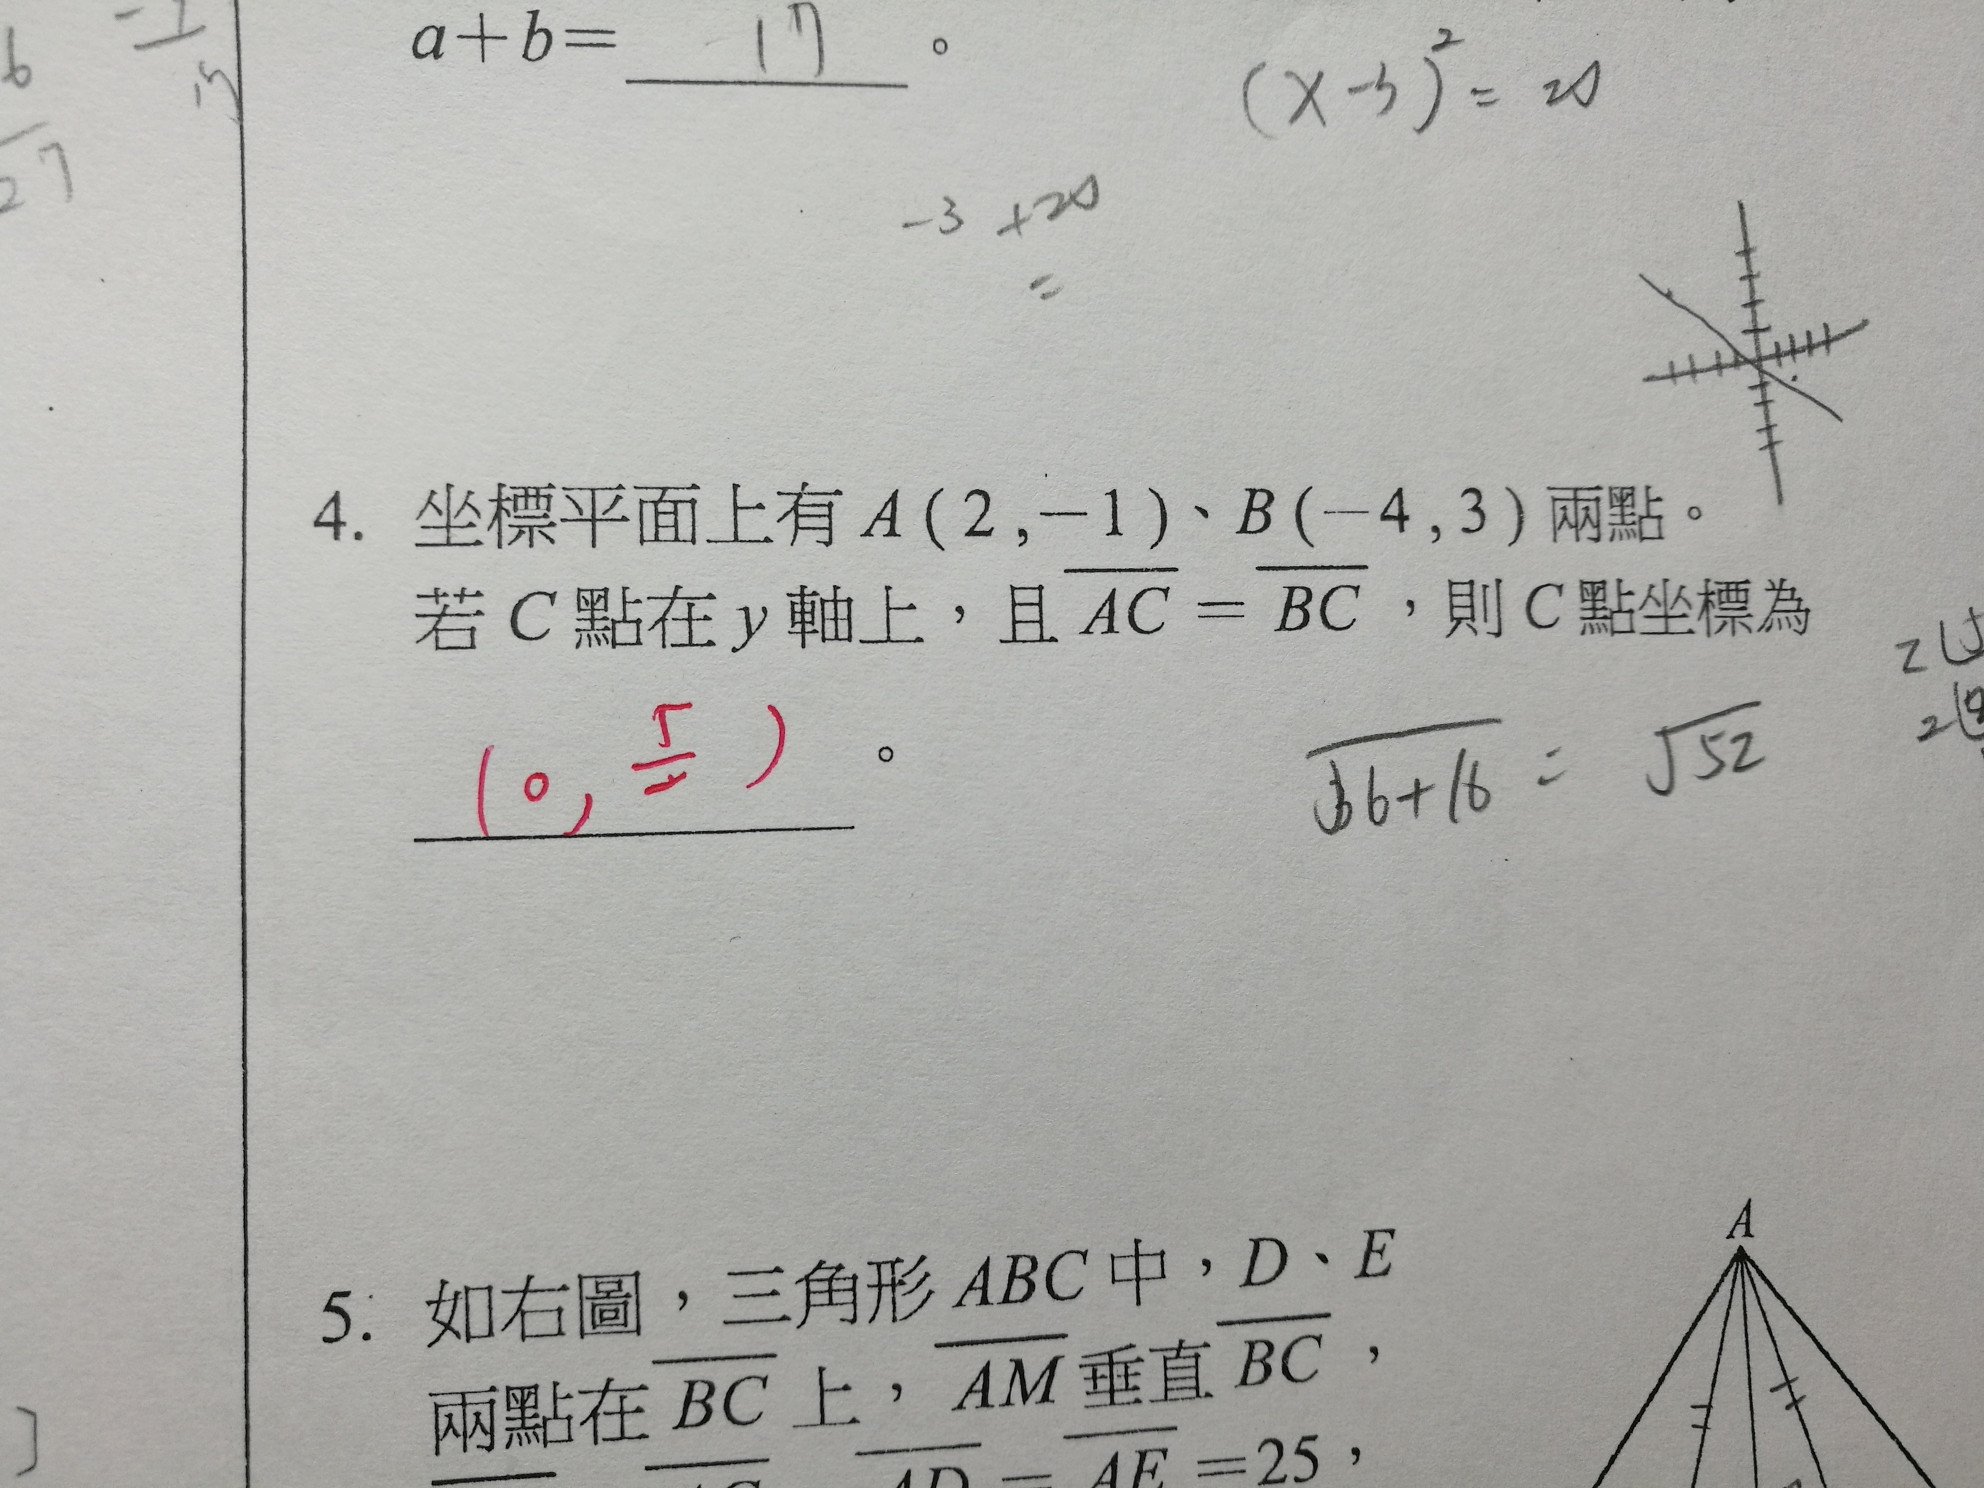 a+b= 17 。
(x-5)² = 20
-3 +20
=
4. 坐標平面上有 A(2,-1)、B(-4,3) 兩點。
若 C 點在 y 軸上，且 AC = BC，則 C 點坐標為
(0, 5/2) 。
√36+16 = √52
A
5. 如右圖，三角形 ABC 中，D、E
兩點在 BC 上，AM 垂直 BC，
AD = AE =25，